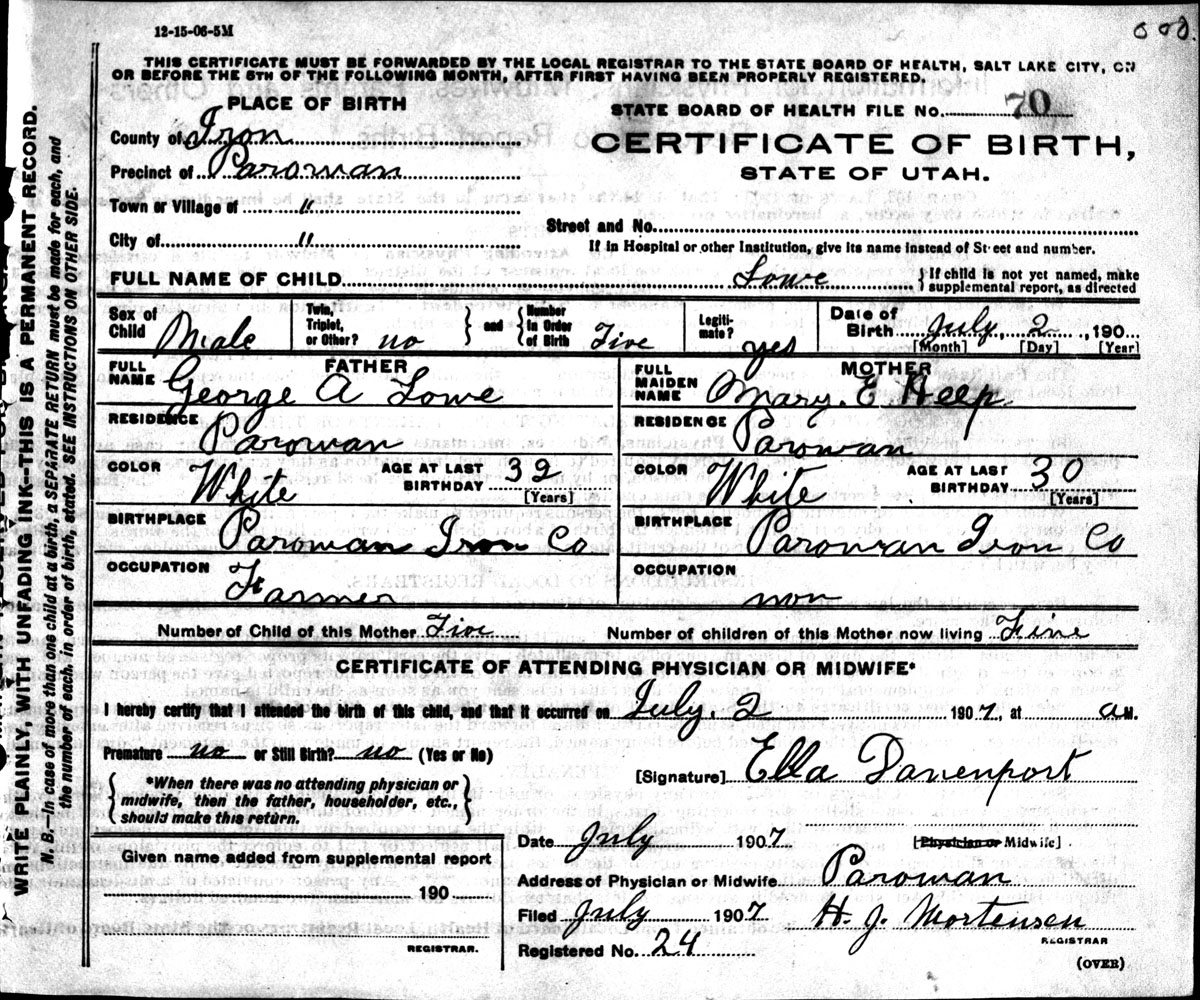 12-15-06-5M
THIS CERTIFICATE MUST BE FORWARDED BY THE LOCAL REGISTRAR TO THE STATE BOARD OF HEALTH, SALT LAKE CITY, ON
OR BEFORE THE 5TH OF THE FOLLOWING MONTH, AFTER FIRST HAVING BEEN PROPERLY REGISTERED.
PLACE OF BIRTH
STATE BOARD OF HEALTH FILE No. 70
County of Iron
CERTIFICATE OF BIRTH,
Precinct of Parowan
STATE OF UTAH.
Town or Village of "
Street and No.
City of "
If in Hospital or other Institution, give its name instead of Street and number.
FULL NAME OF CHILD Lowe } If child is not yet named, make supplemental report, as directed
Sex of Child Male
Twin, Triplet, or Other? no } and { Number in Order of Birth Five
Legitimate? yes
Date of Birth July 2, 190
[Month] [Day] [Year]
FATHER
FULL NAME George A Lowe
RESIDENCE Parowan
COLOR White AGE AT LAST BIRTHDAY 32 [Years]
BIRTHPLACE Parowan Iron Co
OCCUPATION Farmer
MOTHER
FULL MAIDEN NAME Mary. E Heep
RESIDENCE Parowan
COLOR White AGE AT LAST BIRTHDAY 30 [Years]
BIRTHPLACE Parowan Iron Co
OCCUPATION non
Number of Child of this Mother Five
Number of children of this Mother now living Five
CERTIFICATE OF ATTENDING PHYSICIAN OR MIDWIFE*
I hereby certify that I attended the birth of this child, and that it occurred on July. 2 1907, at a M.
Premature no or Still Birth? no (Yes or No)
[Signature] Ella Davenport
{ *When there was no attending physician or midwife, then the father, householder, etc., should make this return. }
Date July 1907
[Physician or Midwife]
Given name added from supplemental report
190
REGISTRAR.
Address of Physician or Midwife Parowan
Filed July 1907 H. J. Mortensen
REGISTRAR
Registered No. 24
(OVER)
WRITE PLAINLY, WITH UNFADING INK—THIS IS A PERMANENT RECORD.
N. B.—In case of more than one child at a birth, a SEPARATE RETURN must be made for each, and
the number of each, in order of birth, stated. SEE INSTRUCTIONS ON OTHER SIDE.